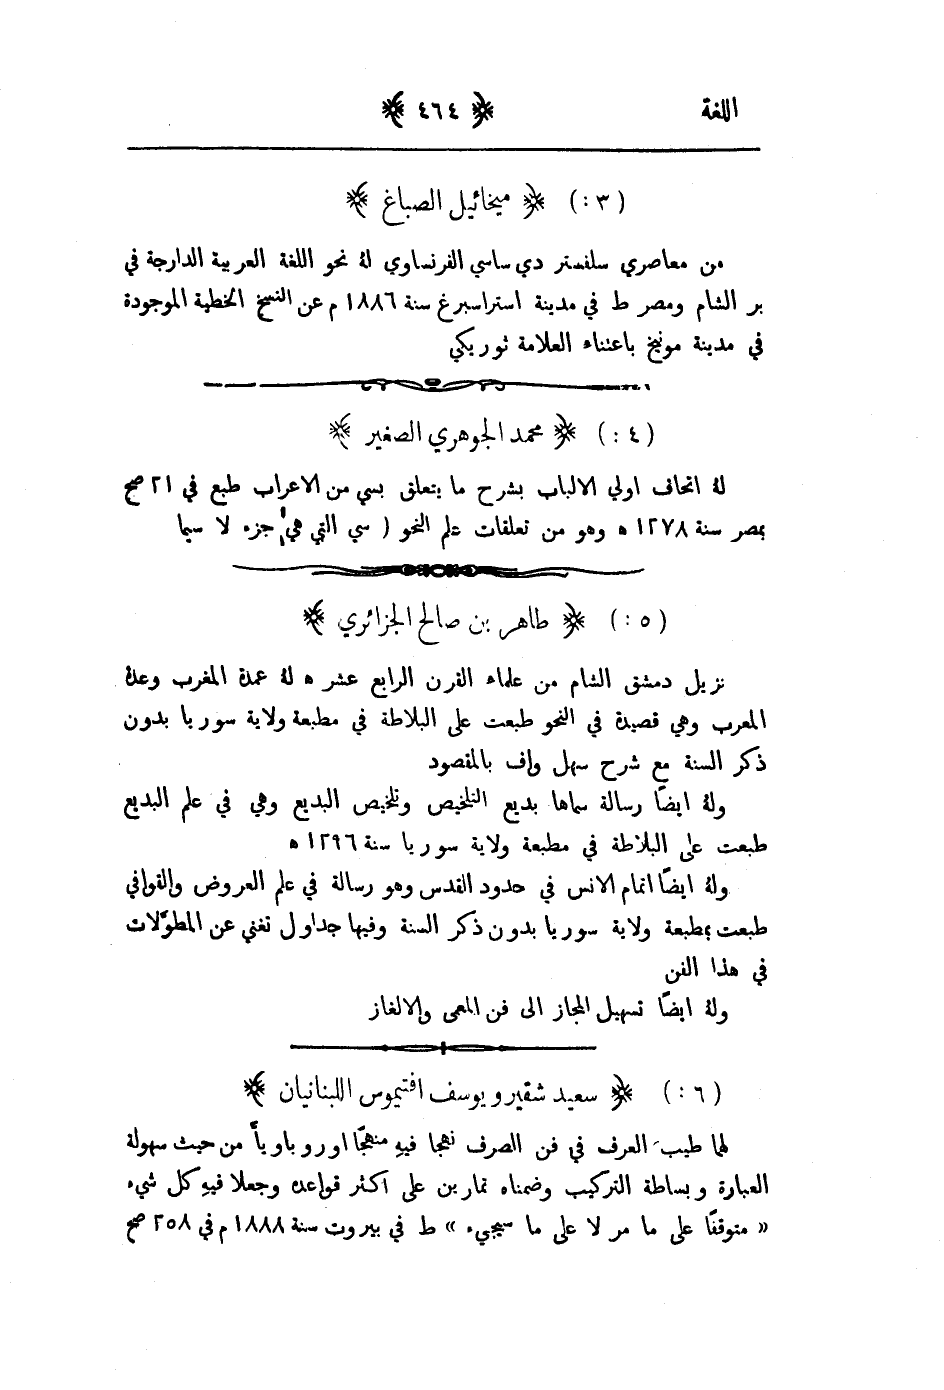 اللغة ﴿ ٤٦٤ ﴾
(٣:) ﴿ ميخائيل الصباغ ﴾
من معاصري سلفستر دي ساسي الفرنساوي لهُ نحو اللغة العربية الدارجة في
بر الشام ومصر ط في مدينة استراسبرغ سنة ١٨٨٦ م عن النسخ الخطية الموجودة
في مدينة مونيخ باعتناء العلامة ثوربكي
(٤:) ﴿ محمد الجوهري الصغير ﴾
لهُ اتحاف اولي الالباب بشرح ما يتعلق بسي من الاعراب طبع في ٢١ صح
بمصر سنة ١٢٧٨ ه وهو من تعلقات علم النحو ( سي التي هي جزء لا سيما
(٥:) ﴿ طاهر بن صالح الجزائري ﴾
نزيل دمشق الشام من علماء القرن الرابع عشر ه لهُ عمدة المغرب وعدة
المعرب وهي قصيدة في النحو طبعت على البلاطة في مطبعة ولاية سوريا بدون
ذكر السنة مع شرح سهل واف بالمقصود
ولهُ ايضًا رسالة سماها بديع التلخيص وتلخيص البديع وهي في علم البديع
طبعت على البلاطة في مطبعة ولاية سوريا سنة ١٢٩٦ ه
ولهُ ايضًا اتمام الانس في حدود القدس وهو رسالة في علم العروض والقوافي
طبعت بمطبعة ولاية سوريا بدون ذكر السنة وفيها جداول تغني عن المطوَّلات
في هذا الفن
ولهُ ايضًا تسهيل المجاز الى فن المعمى والالغاز
(٦:) ﴿ سعيد شقير ويوسف افتيموس اللبنانيان ﴾
لهما طيب العرف في فن الصرف نهجا فيهِ منهجًا اوروباويًا من حيث سهولة
العبارة وبساطة التركيب وضمناه تمارين على اكثر قواعده وجعلا فيهِ كل شيء
« متوقفًا على ما مر لا على ما سيجيء » ط في بيروت سنة ١٨٨٨ م في ٢٥٨ صح